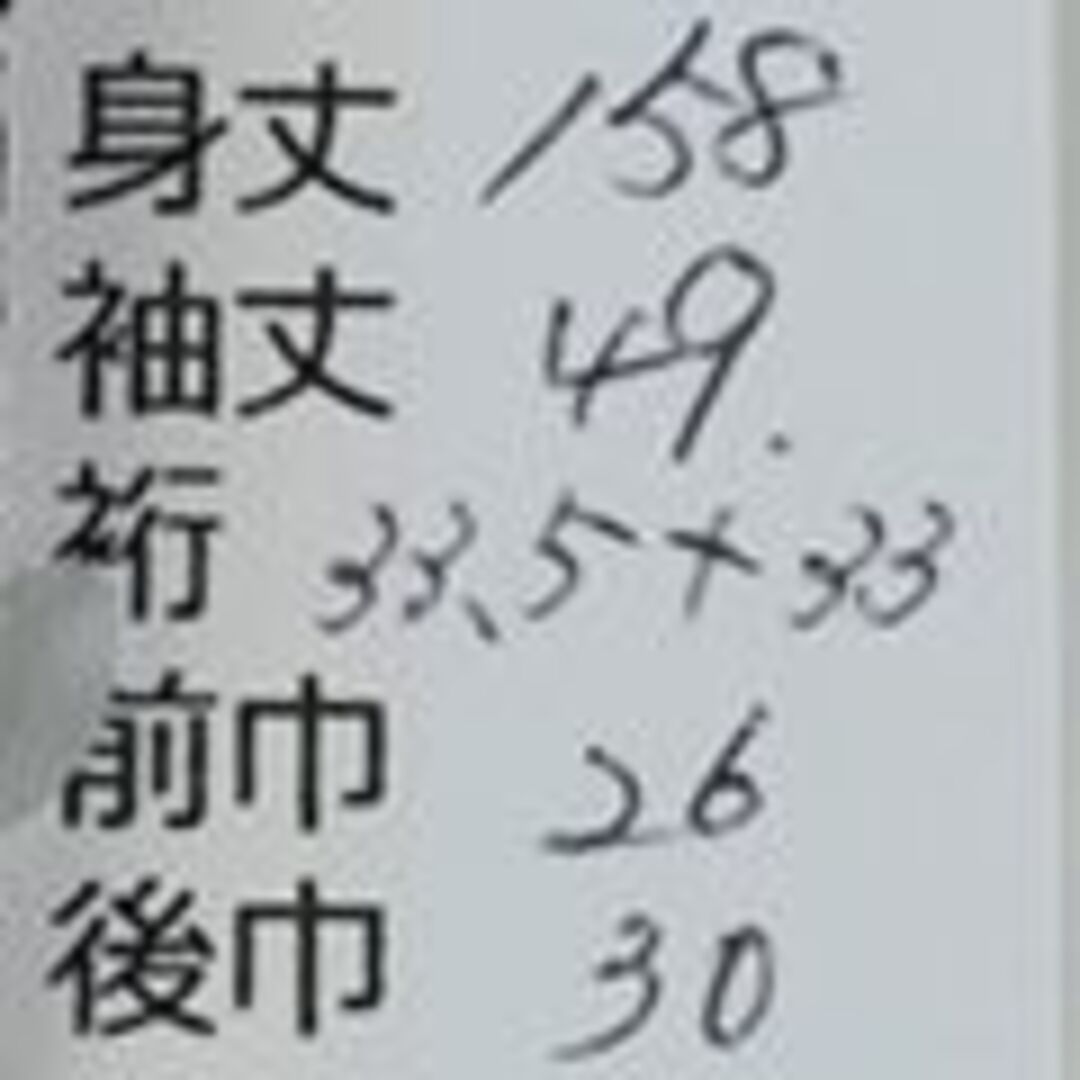 身丈 158
袖丈 49.
裄 33.5+33
前巾 26
後巾 30